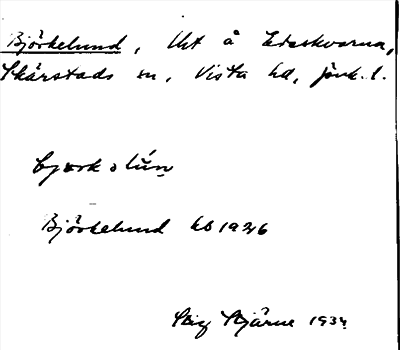 Björkelund, Uht å Edeskvarna,
Skärstads sn, Vista hd, Jönk. l.
bjørkəlún
Björkelund hs 1926
Stig Stjärne 1934